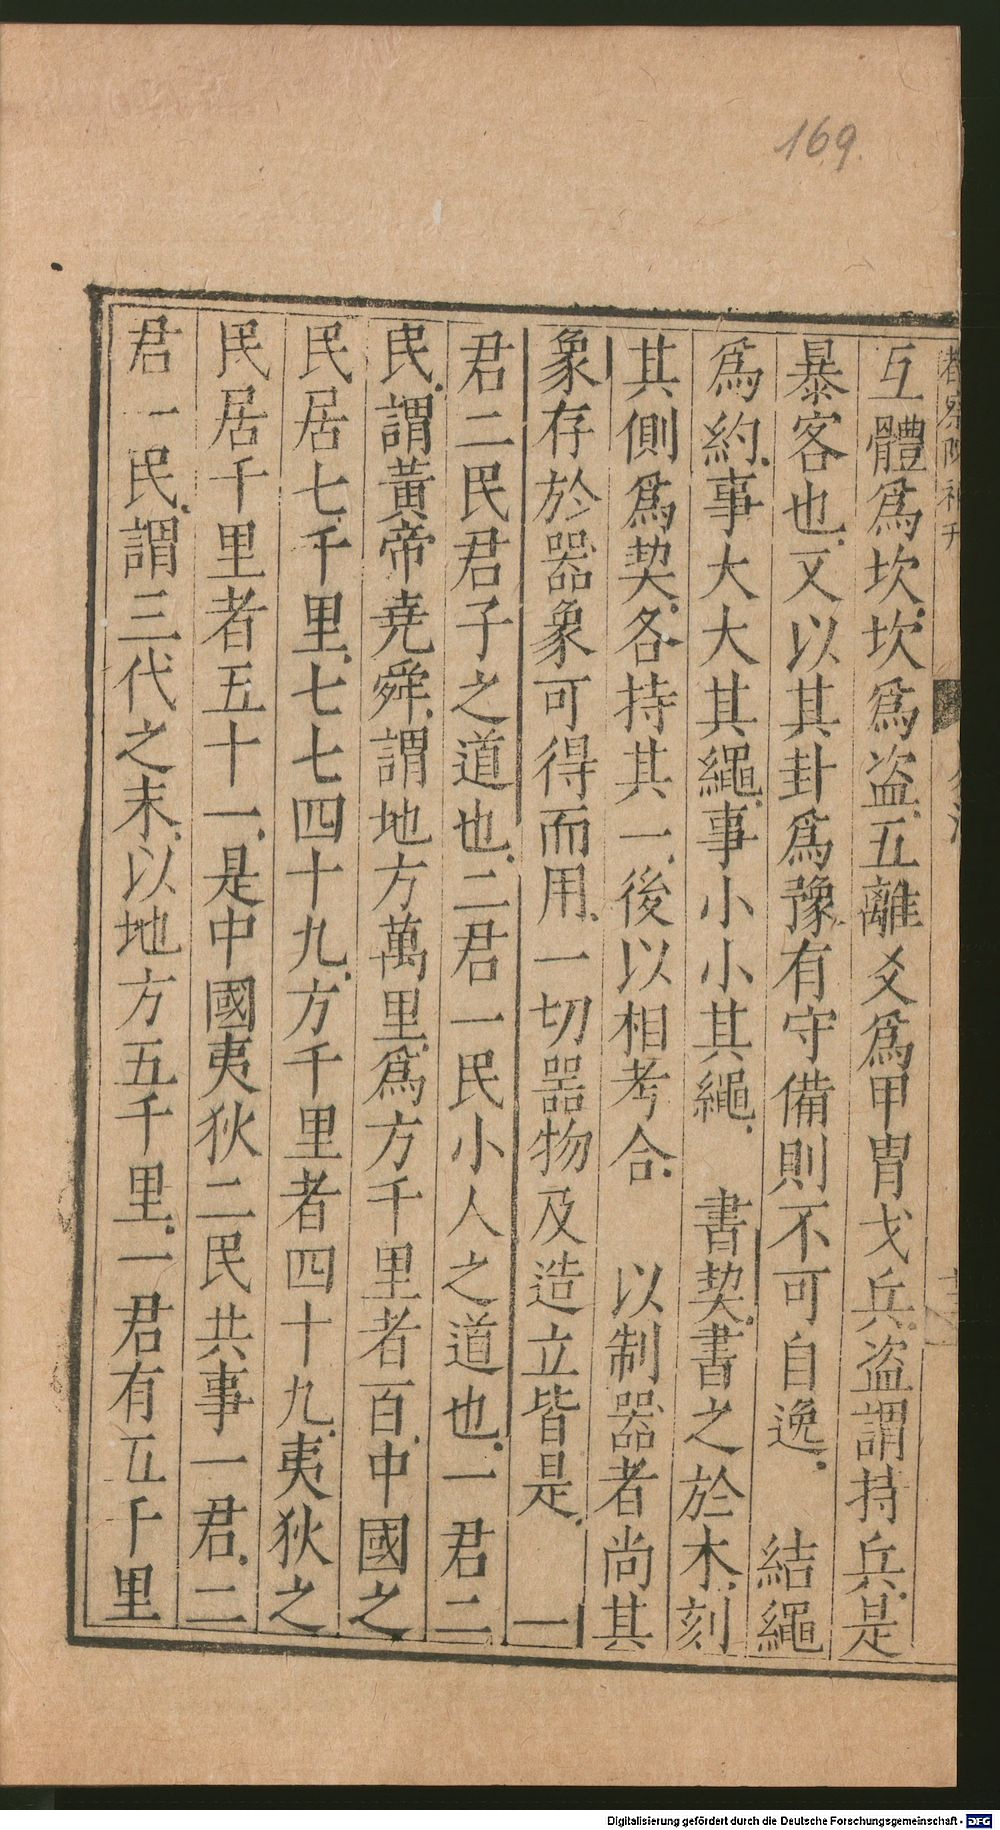 169.
互體爲坎。坎爲盗。五離爻爲甲冑戈兵。盗謂持兵。是
暴客也。又以其卦爲豫。有守備則不可自逸。　結繩
爲約。事大大其繩。事小小其繩。　書契。書之於木。刻
其側爲契。各持其一。後以相考合。　以制器者尚其
象存於器象可得而用。一切器物及造立皆是。　一
君二民君子之道也。二君一民小人之道也。一君二
民。謂黃帝堯舜。謂地方萬里。爲方千里者百。中國之
民居七千里。七七四十九。方千里者四十九。夷狄之
民居千里者五十一。是中國夷狄二民共事一君。二
君一民。謂三代之末。以地方五千里。一君有五千里
Digitalisierung gefördert durch die Deutsche Forschungsgemeinschaft - DFG